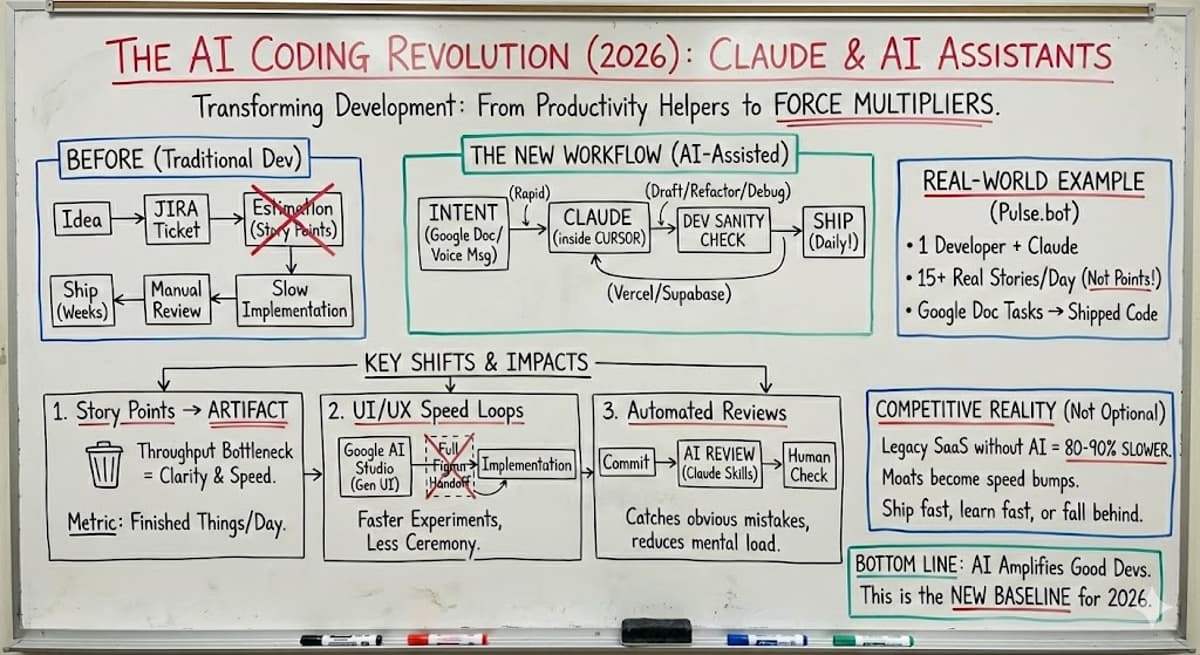 THE AI CODING REVOLUTION (2026): CLAUDE & AI ASSISTANTS
Transforming Development: From Productivity Helpers to FORCE MULTIPLIERS.
BEFORE (Traditional Dev)
Idea
JIRA
Ticket
Estimation
(Story Points)
Slow
Implementation
Manual
Review
Ship
(Weeks)
THE NEW WORKFLOW (AI-Assisted)
INTENT
(Google Doc/
Voice Msg)
(Rapid)
CLAUDE
(inside CURSOR)
(Draft/Refactor/Debug)
DEV SANITY
CHECK
SHIP
(Daily!)
(Vercel/Supabase)
REAL-WORLD EXAMPLE
(Pulse.bot)
• 1 Developer + Claude
• 15+ Real Stories/Day (Not Points!)
• Google Doc Tasks → Shipped Code
KEY SHIFTS & IMPACTS
1. Story Points → ARTIFACT
Throughput Bottleneck
= Clarity & Speed.
Metric: Finished Things/Day.
2. UI/UX Speed Loops
Google AI
Studio
(Gen UI)
Full
Figma
Handoff
Implementation
Faster Experiments,
Less Ceremony.
3. Automated Reviews
Commit
AI REVIEW
(Claude Skills)
Human
Check
Catches obvious mistakes,
reduces mental load.
COMPETITIVE REALITY (Not Optional)
Legacy SaaS without AI = 80-90% SLOWER.
Moats become speed bumps.
Ship fast, learn fast, or fall behind.
BOTTOM LINE: AI Amplifies Good Devs.
This is the NEW BASELINE for 2026.